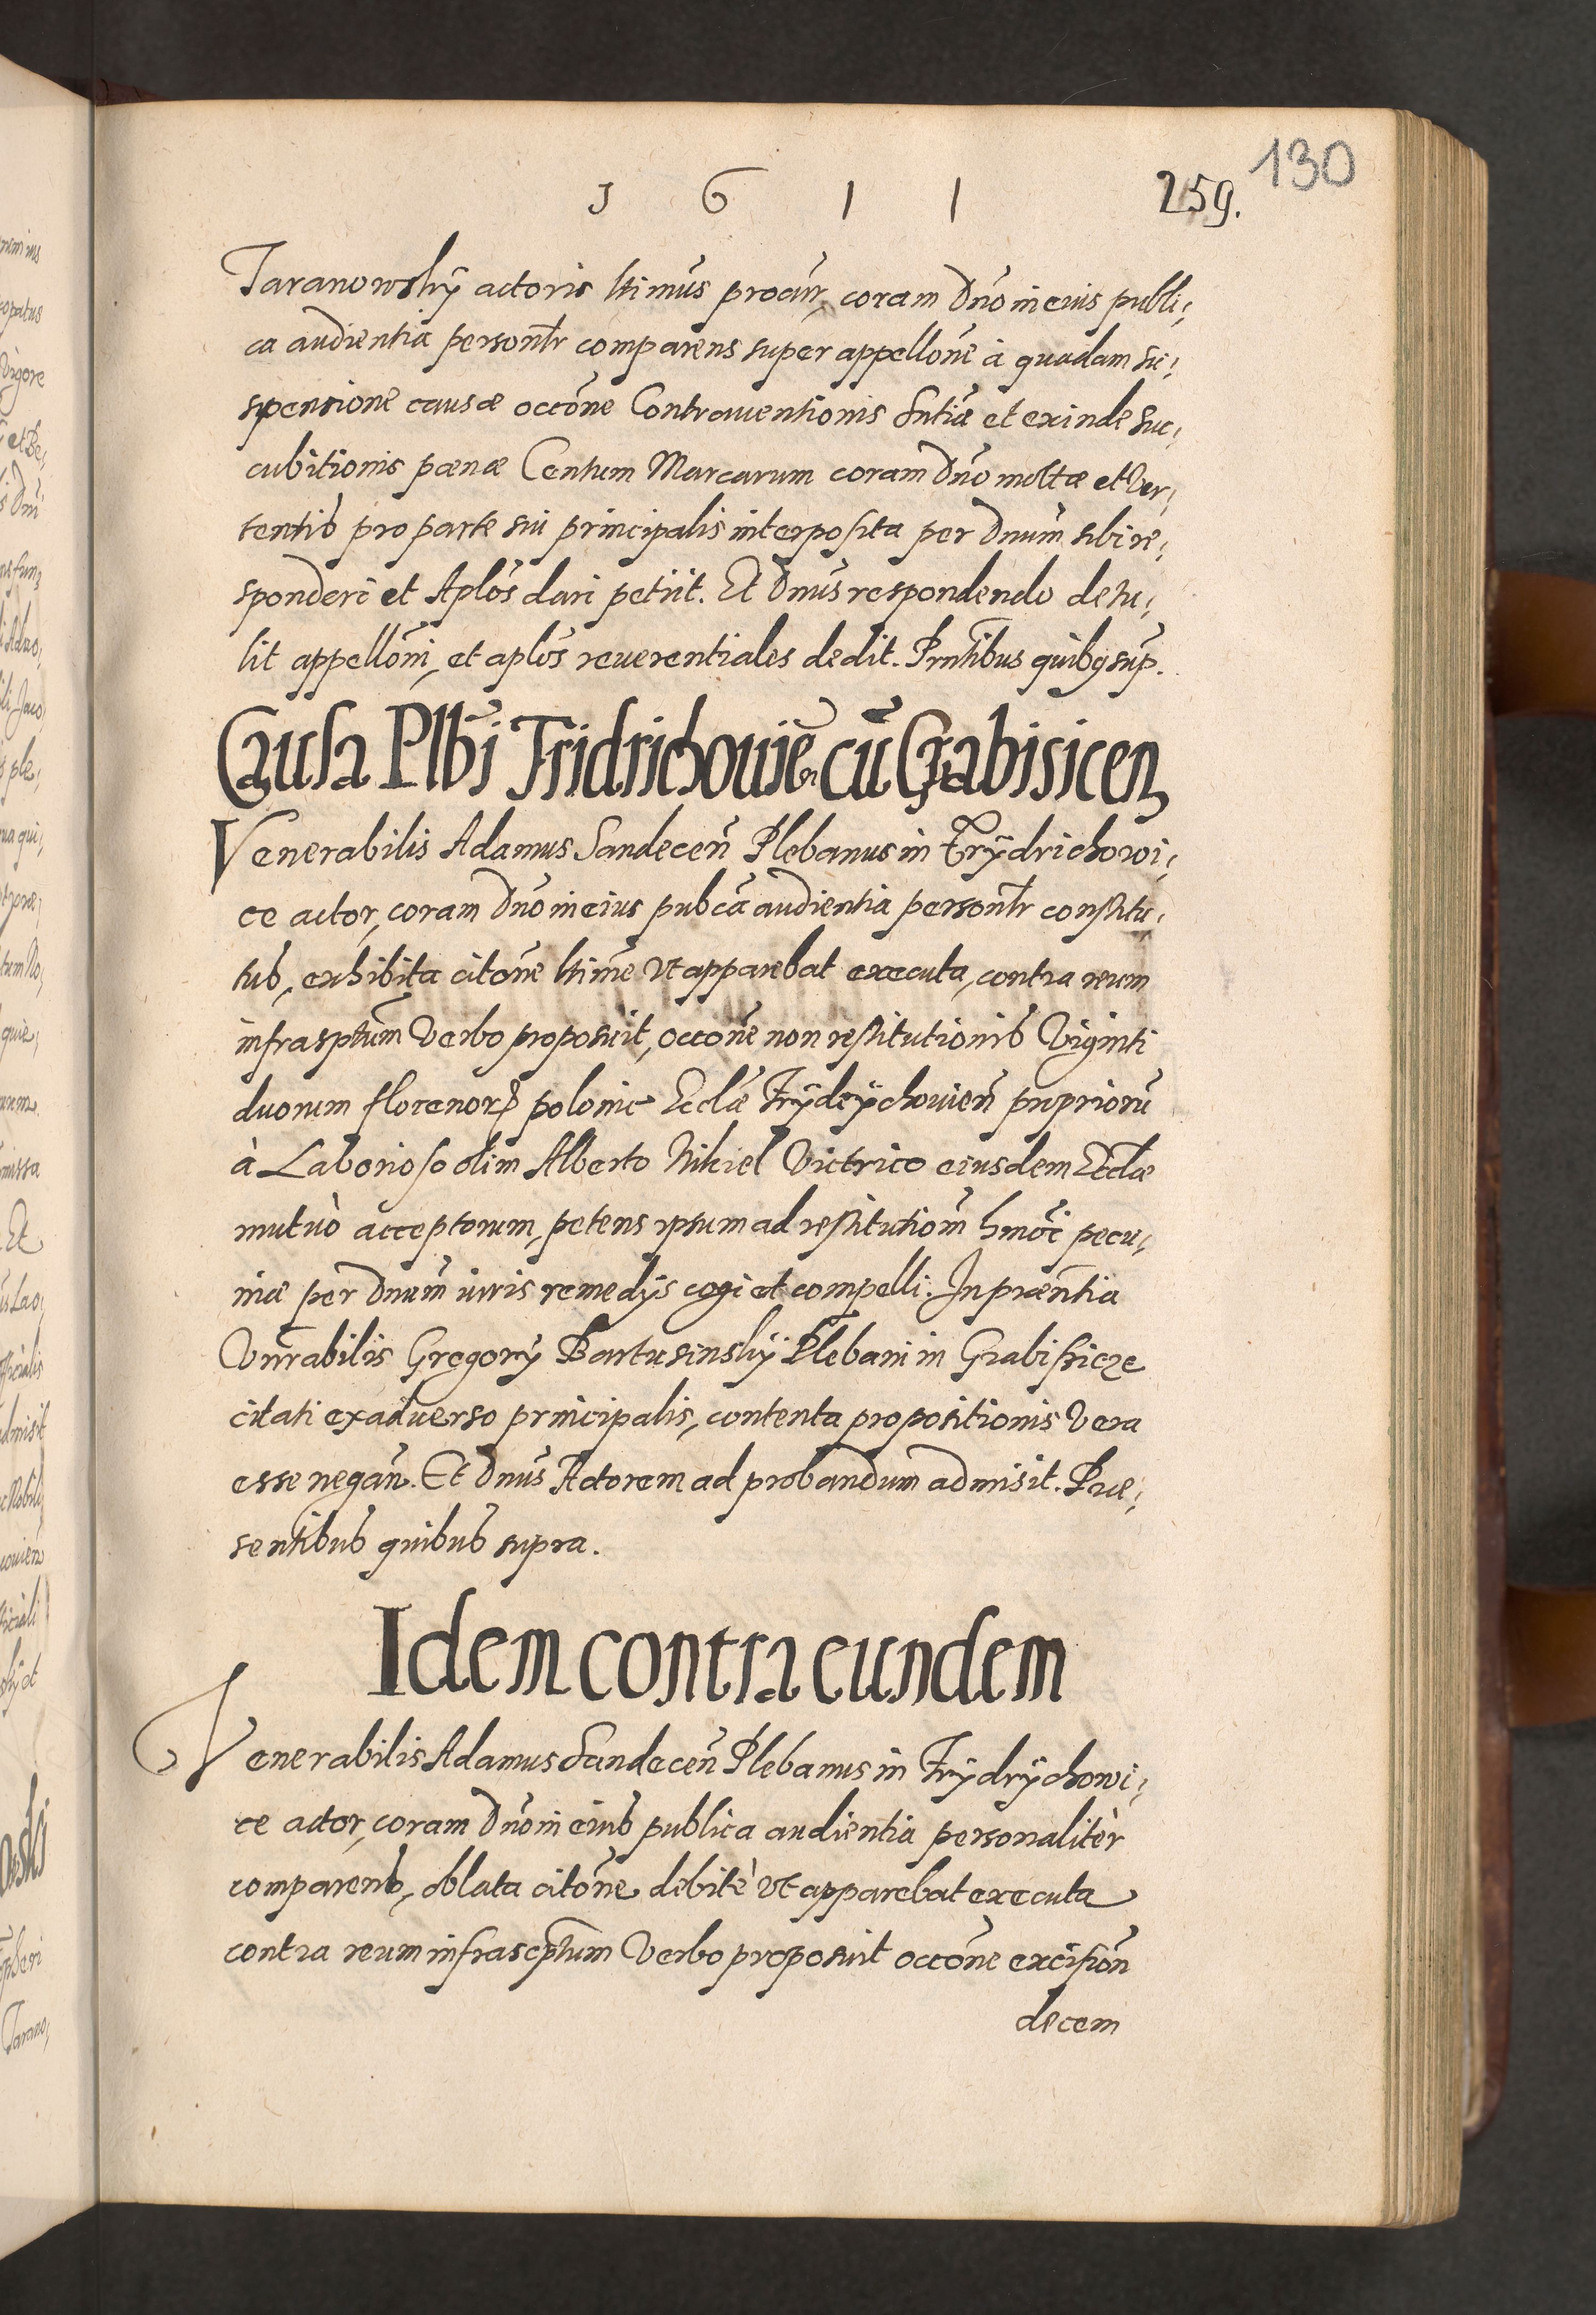 130
1 6 1 1 259.
Taranowskÿ actoris ltimûs procur̃, coram Dño in eius publi¡
ca audientia personlr̃ comparens super appellõne à quadam su¡
spensione causæ occõne Contrauentionis sñtiæ et exinde suc¡
cubitionis pœnæ Centum Marcarum coram Dño motæ et Ver¡
tentis pro parte sui principalis interposita per Dnum̃ sibi re¡
sponderi et Aplõs dari petiit. Et Dnũs respondendo detu¡
lit appellõni, et aplõs reuerentiales dedit. Pñtibus quibq sup̃.
Causa Plb̃i Fridrichouien̄ cũ Grabisicen
Venerabilis Adamus Sandeceñ Plebanus in Frÿdrichowi¡
ce actor, coram Dño in eius pubcã audientia personlr̃ constitu¡
tus, exhibita citõne ltimẽ Vt apparebat executa, contra reum
infrasptum̃ Verbo proposuit, occõne non restitutionis Viginti
duorum florenorꝝ polonic Eccl̃æ Frÿdrÿchouieñ propriorũ
à Laborioso olim Alberto Nikiel Victrico eiusdem Eccl̃æ
mutuò acceptorum, petens ipsum ad restitutioñ hmõi pecu¡
niæ per Dnum̃ iuris remedÿs cogi et compelli. In præñtia
Vnr̃abilis Gregorÿ Bartusinskÿ Plebani in Grabissicze
citati ex aduerso principalis, contenta propositionis Vera
esse negañ. Et Dnũs Actorem ad probandum admisit. Præ¡
sentibus quibus supra.
Idem contra eundem
Venerabilis Adamus Sandeceñ Plebanus in Frÿdrÿchowi¡
ce actor, coram Dño in eius publica audientia personalitèr
comparens, oblata citõne debitè Vt apparebat executa
contra reum infrascptũm Verbo proposuit occõne excisioñ
decem